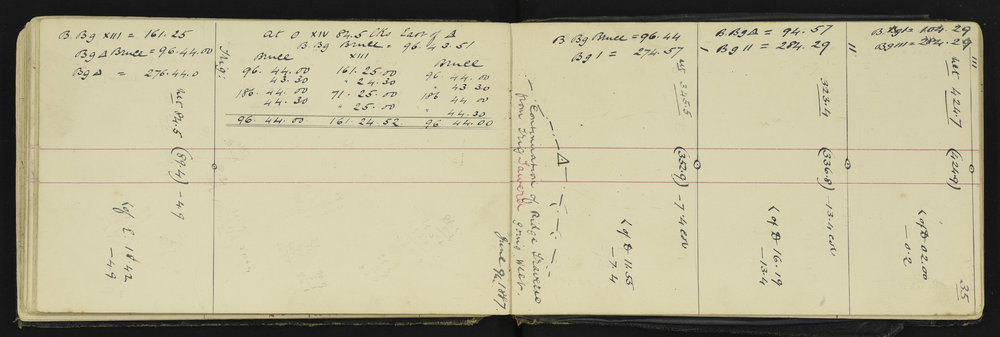 B. Bg XIII = 161.25
Bg Δ Bruce = 96.44.00
Bg Δ = 276.44.0
Us 84.5
(89.4) - 4.9
∠ of E 18.42
- 4.9
Trig:
at O XIV 84.5 lks East of Δ
B. Bg Bruce = 96.43.51
Bruce XIII Bruce
96. 44. 00 161. 25. 00 96 44. 00
43. 30 " 24. 30 " 43 30
186. 44. 00 71. 25. 00 186 44 00
44. 30 " 25. 00 " 44. 30
96. 44. 00 161. 24. 52 96 44. 00
Continuation of Ridge Traverse
from Trig Tawera going West.
June 9, 1887.
Δ
B Bg Bruce = 96.44
Bg I = 274.57
Us 345.5
(352.9) - 7.4
∠ of D 11.55
- 7.4
I
B Bg Δ = 94.57
Bg II = 284.29
323.4
(336.8) - 13.4
∠ of D 16.19
- 13.4
II
B. Bg I = 104.29
Bg III = 284.29
III
Us 424.7
(424.9)
∠ of D 02.00
- 0.2
35